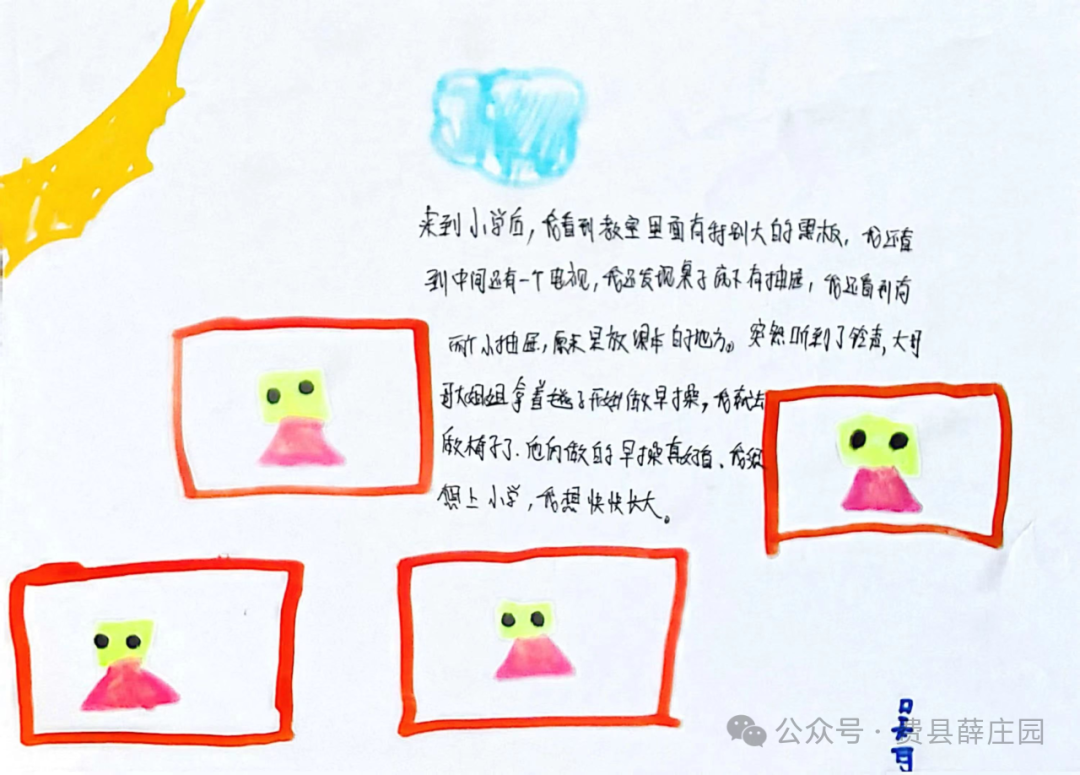 来到小学后，我看到教室里面有特别大的黑板，我还看
到中间还有一个电视，我还发现桌子底下有抽屉，我还看到有
两个小抽屉，原来是放课本的地方。突然听到了铃声，大哥
哥大姐姐拿着 开始做早操，我就去
做椅子了、他们做的早操真好看、我很
想上小学，我想快快长大。
公众号·费县薛庄园